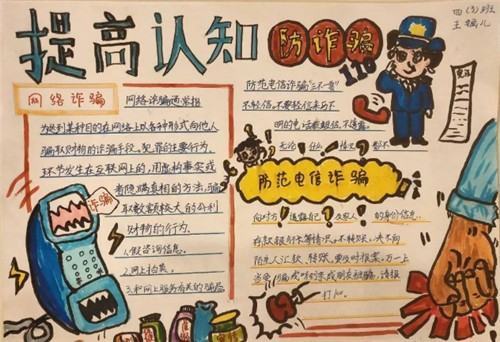 提高认知
防诈骗
110
四(3)班
王
网络诈骗
网络诈骗通常指
为达到某种目的在网络上以各种形式向他人
骗取财物的诈骗手段。犯罪的主要行为、
环节发生在互联网上的,用虚构事实或
者隐瞒真相的方法,骗
取数额较大的公私
财物的行为
1.假咨询信息。
2.网上拍卖。
3.和网上服务有关的骗局
诈骗
防范电信诈骗"三不一要"
不轻信:不要轻信来历不
明的电话和短信,不透露。
无论 什么 情况 都不
防范电信诈骗
向对方透露自己 及家人 的身份信息、
存款、银行卡等情况。不转账,决不向
陌生人汇款、转账,要及时报案:万一上
当受骗或听到亲戚朋友被骗,请报
打110.